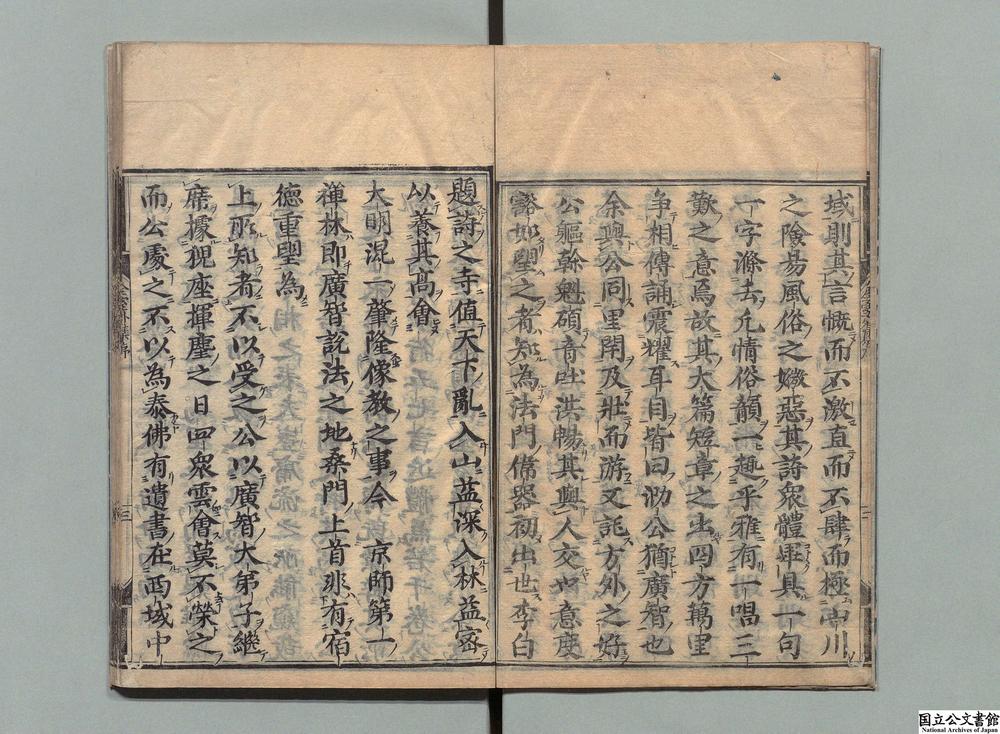 域則其言慨而不激直而不肆而極山川
之險易風俗之媺惡其詩衆體畢具一句
一字滌去凡情俗韻一趣乎雅有一唱三
歎之意焉故其大篇短章之出四方萬里
争相傳誦震耀耳目皆曰泐公猶廣智也
余與公同里閈及壯而游又託方外之好
公軀幹魁碩音吐洪暢其與人交也意度
豁如望之者知為法門偉器初出世李白
題詩之寺值天下亂入山益深入林益密
以養其髙會
大明混一肇隆像教之事今京師第一
禪林即廣智說法之地桑門上首非有宿
德重望為
上所知者不以受之公以廣智大第子繼
席據猊座揮麈之日四衆雲會莫不榮之
而公處之不以為泰佛有遺書在西域中
国立公文書館
National Archives of Japan